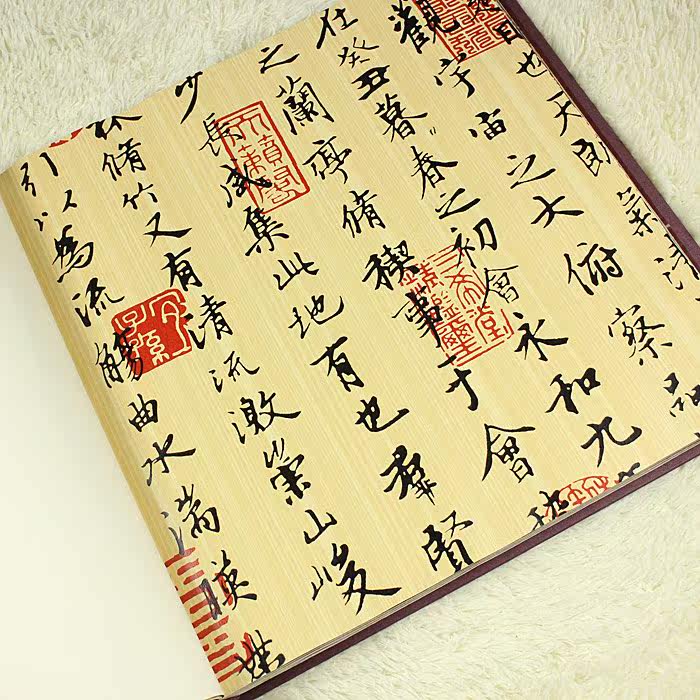 日也天朗氣清
觀宇宙之大俯察品
在癸丑暮春之初會永和九
之蘭亭脩禊事于會
少長咸集此地有也羣賢
林脩竹又有清流激崇山峻
引以為流觴曲水湍暎